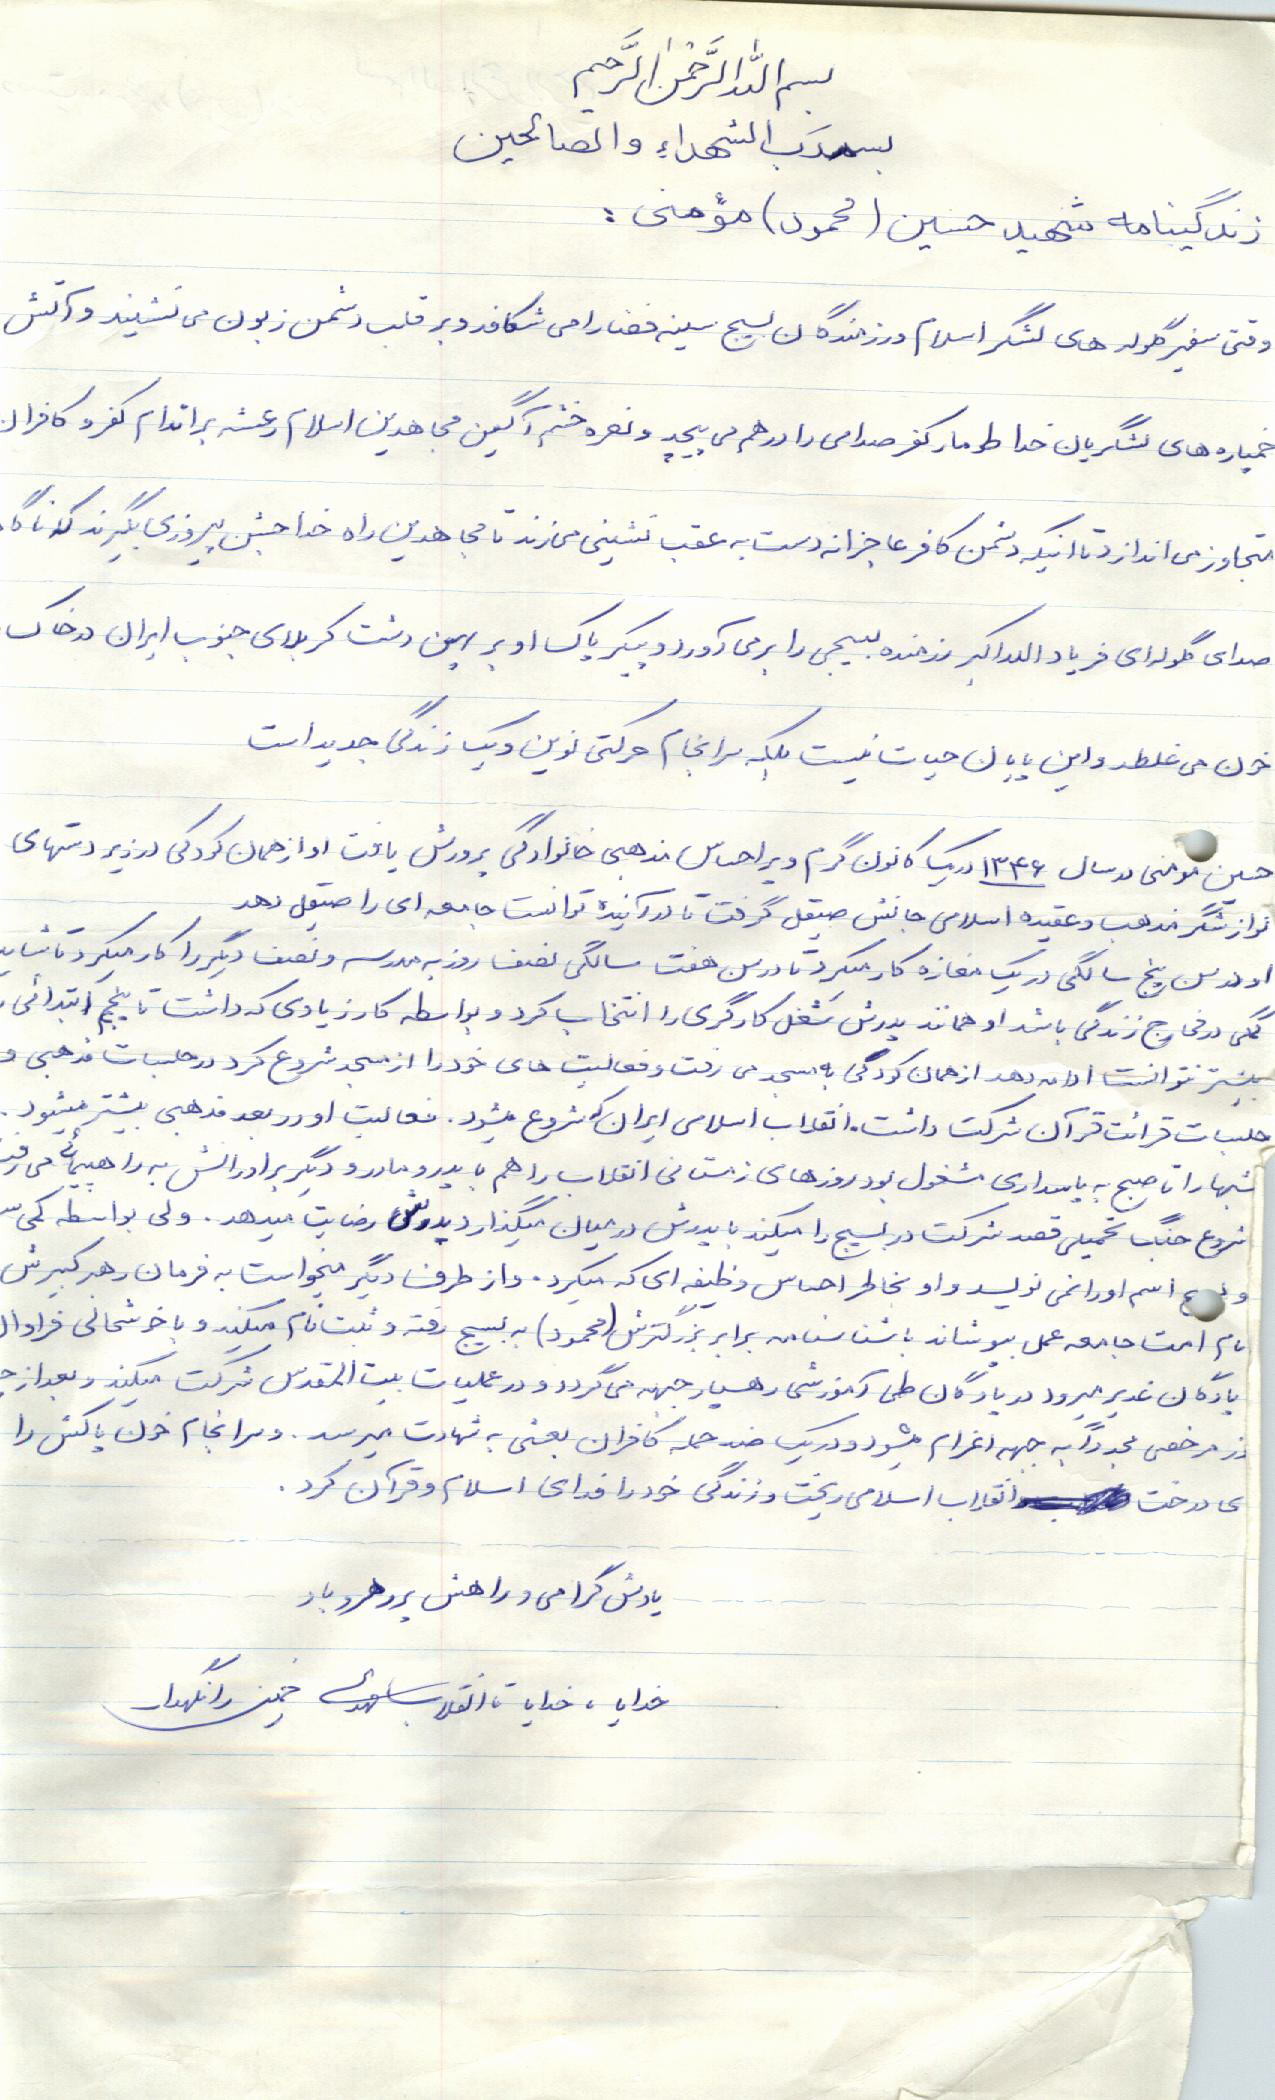 بسم الله الرَّحمٰن الرَّحیم
بسم رَب الشهداء والصالحین
زندگینامه شهید حسین (محمود) مؤمنی :
وقتی سفیر گلوله های لشگر اسلام ورزمندگان بسیج سینه فضا را می شکافد و بر قلب دشمن زبون می نشیند و آتش
خمپاره های لشگریان خدا طومار کفر صدامی را درهم می پیچد و نعره خشم آگین مجاهدین اسلام رعشه بر اندام کفر و کافران
متجاوز می اندازد تا اینکه دشمن کافر عاجزانه دست به عقب نشینی می زند تا مجاهدین راه خدا جشن پیروزی بگیرند که ناگاه
صدای گلوله ای فریاد الله اکبر رزمنده بسیجی را بر می آورد و پیکر پاک او بر پهن دشت کربلای جنوب ایران در خاک
خون می غلطد و این پایان حیات نیست بلکه سرانجام حرکتی نوین و یک زندگی جدید است
حسین مومنی در سال ۱۳۴۶ در یک کانون گرم و پر احساس مذهبی خانوادگی پرورش یافت او از همان کودکی در زیر دستهای
نوازشگر مذهب و عقیده اسلامی جانش صیقل گرفت تا در آینده توانست جامعه ای را صیقل دهد
او در سن پنج سالگی در یک مغازه کار میکرد تا در سن هفت سالگی نصف روز به مدرسه و نصف دیگر را کار میکرد تا شاید
کمکی در مخارج زندگی باشد او همانند پدرش شغل کارگری را انتخاب کرد و بواسطه کار زیادی که داشت تا پنجم ابتدائی
بیشتر نتوانست ادامه دهد از همان کودکی به مسجد می رفت و فعالیت های خود را از مسجد شروع کرد در جلسات مذهبی و
جلسات قرائت قرآن شرکت داشت. انقلاب اسلامی ایران که شروع میشود. فعالیت او در بعد مذهبی بیشتر میشود.
شبها را تا صبح به پاسداری مشغول بود روزهای زمستانی انقلاب را هم با پدر و مادر و دیگر برادرانش به راهپیمائی می رفت
شروع جنگ تحمیلی قصد شرکت در بسیج را میکند با پدرش در میان میگذارد پدرش رضایت میدهد. ولی بواسطه کمی
اسم او را نمی نویسد و او بخاطر احساس وظیفه ای که میکرد. و از طرف دیگر میخواست به فرمان رهبر کبیرش
امام امت جامعه عمل بپوشاند با شناسنامه برادر بزرگترش (محمود) به بسیج رفته و ثبت نام میکند و با خوشحالی فراوان
پادگان غدیر میرود در پادگان طی آموزشی رهسپار جبهه می گردد و در عملیات بیت المقدس شرکت میکند و بعد از
مرخصی مجدداً به جبهه اعزام میشود و در یک ضد حمله کافران بعثی به شهادت میرسد. و سرانجام خون پاکش را
ی درخت انقلاب اسلامی ریخت و زندگی خود را فدای اسلام و قرآن کرد.
یادش گرامی و راهش پر رهرو باد
خدایا، خدایا تا انقلاب مهدی خمینی را نگهدار